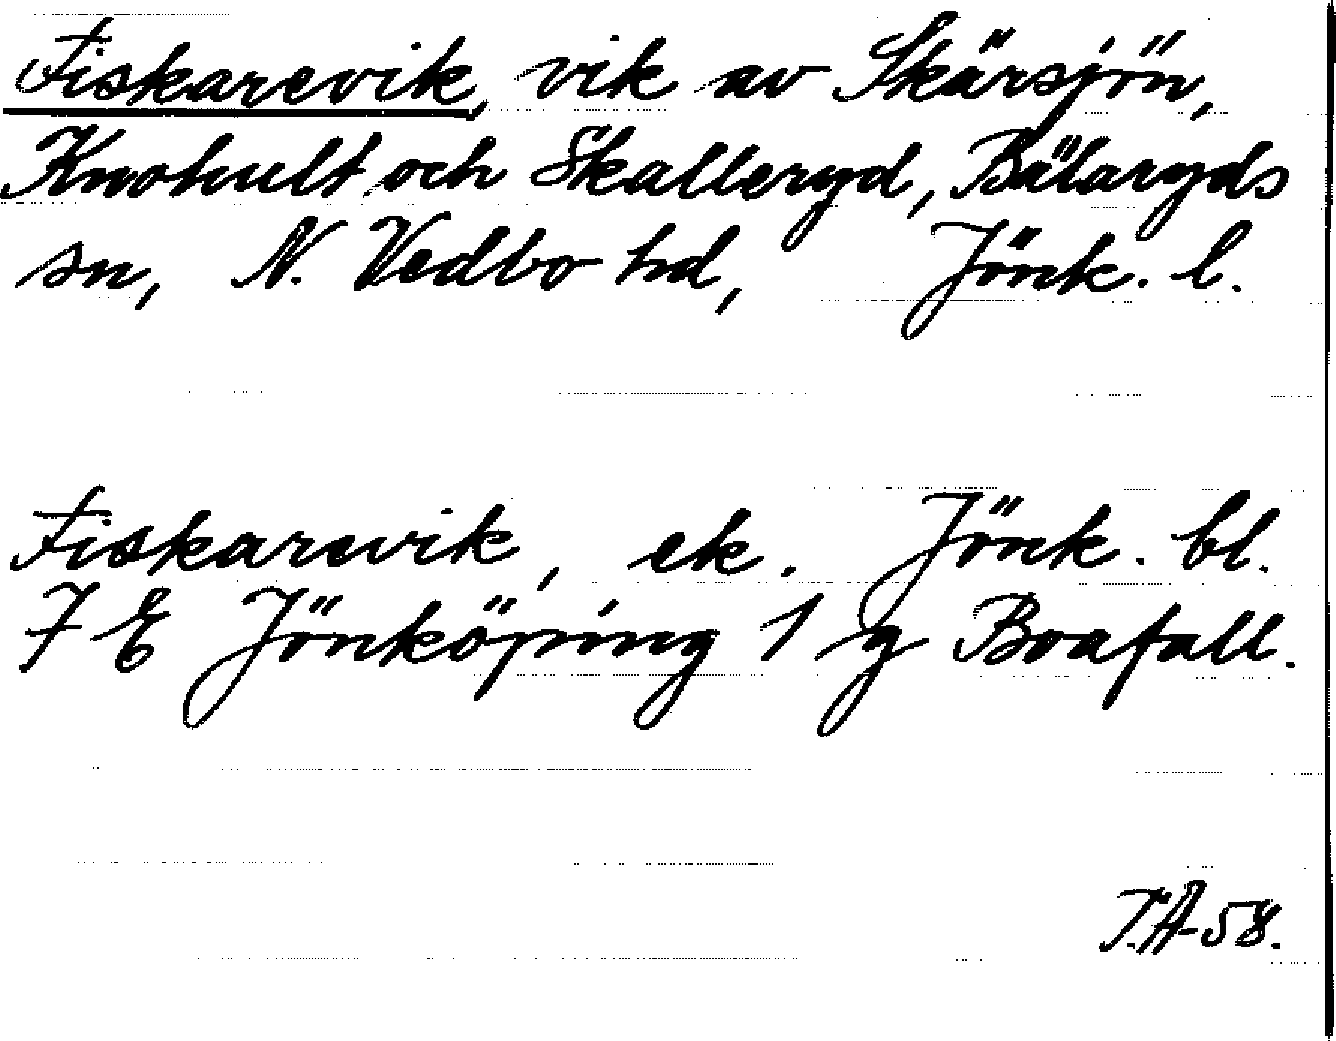 Fiskarevik, vik av Skärsjön,
Knohult och Skalleryd, Bälaryds
sn, N. Vedbo hd, Jönk. l.
Fiskarevik, ek. Jönk. bl.
7 E Jönköping 1 g Boafall.
T.A-58.